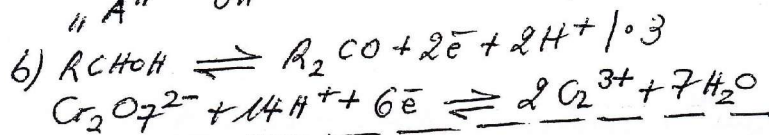 "A"
б) RCHOH ⇌ R₂CO + 2ē + 2H⁺ | · 3
Cr₂O₇²⁻ + 14H⁺ + 6ē ⇌ 2Cr³⁺ + 7H₂O